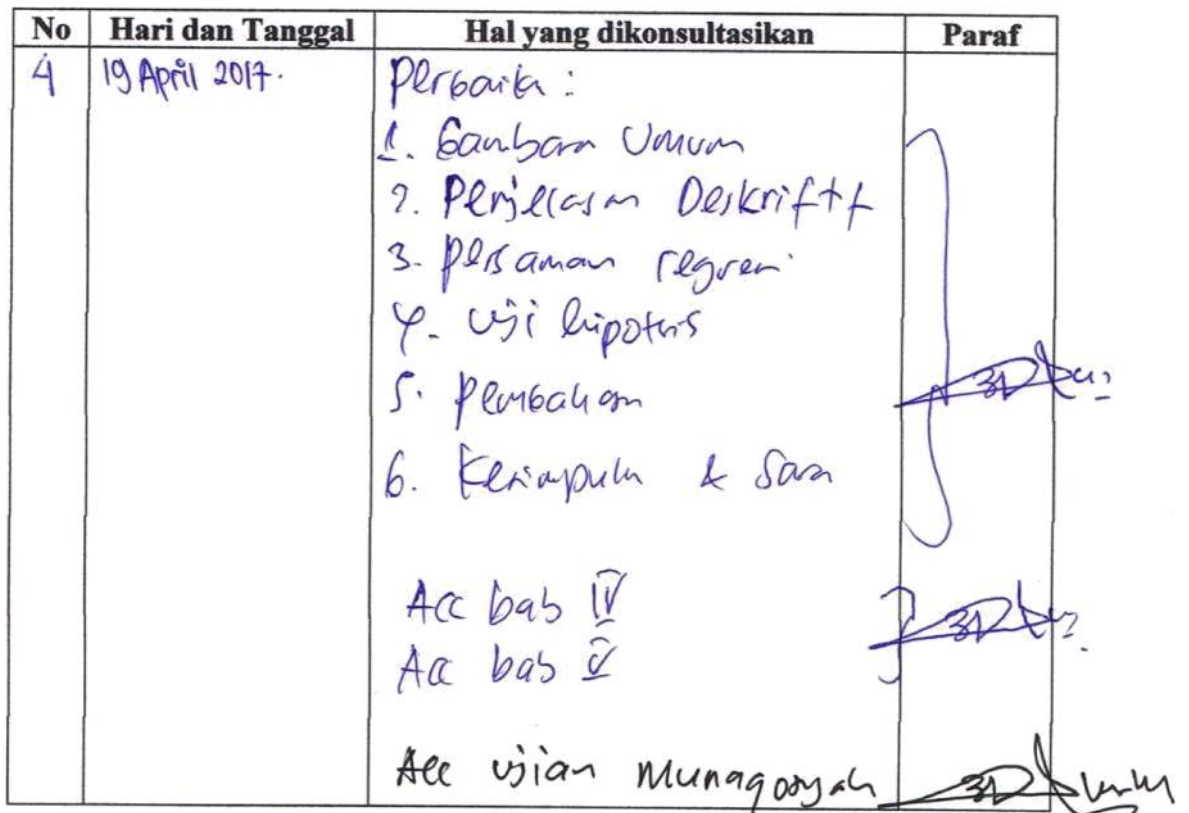 No Hari dan Tanggal Hal yang dikonsultasikan Paraf
4 19 April 2017. Perbaiki :
1. Gambaran Umum
2. Penjelasan Deskriftf
3. Persamaan regresi
4. Uji hipotesis
5. Pembahasan
6. Kesimpulan & Saran
Acc bab IV
Acc bab V
Acc ujian Munaqosyah